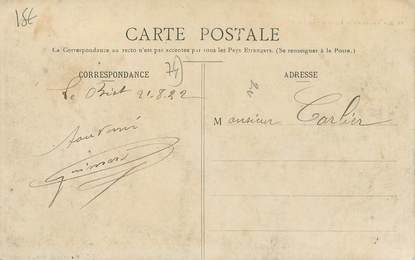 15€
CARTE POSTALE
La Correspondance au recto n'est pas acceptée par tous les Pays Etrangers. (Se renseigner à la Poste.)
CORRESPONDANCE
74
ADRESSE
Le Biot 21.8.22
Monsieur Carlier
Souvenir